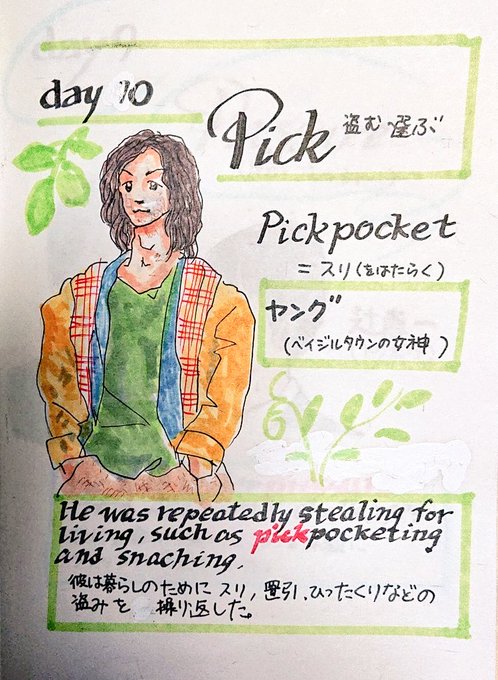 day 10
Pick 盗む 選ぶ
Pickpocket
= スリ(をはたらく)
ヤング
(ベイジルタウンの女神)
He was repeatedly stealing for
living, such as pickpocketing
and snaching,
彼は暮らしのために スリ, 置引, ひったくりなどの
盗みを 繰り返した。